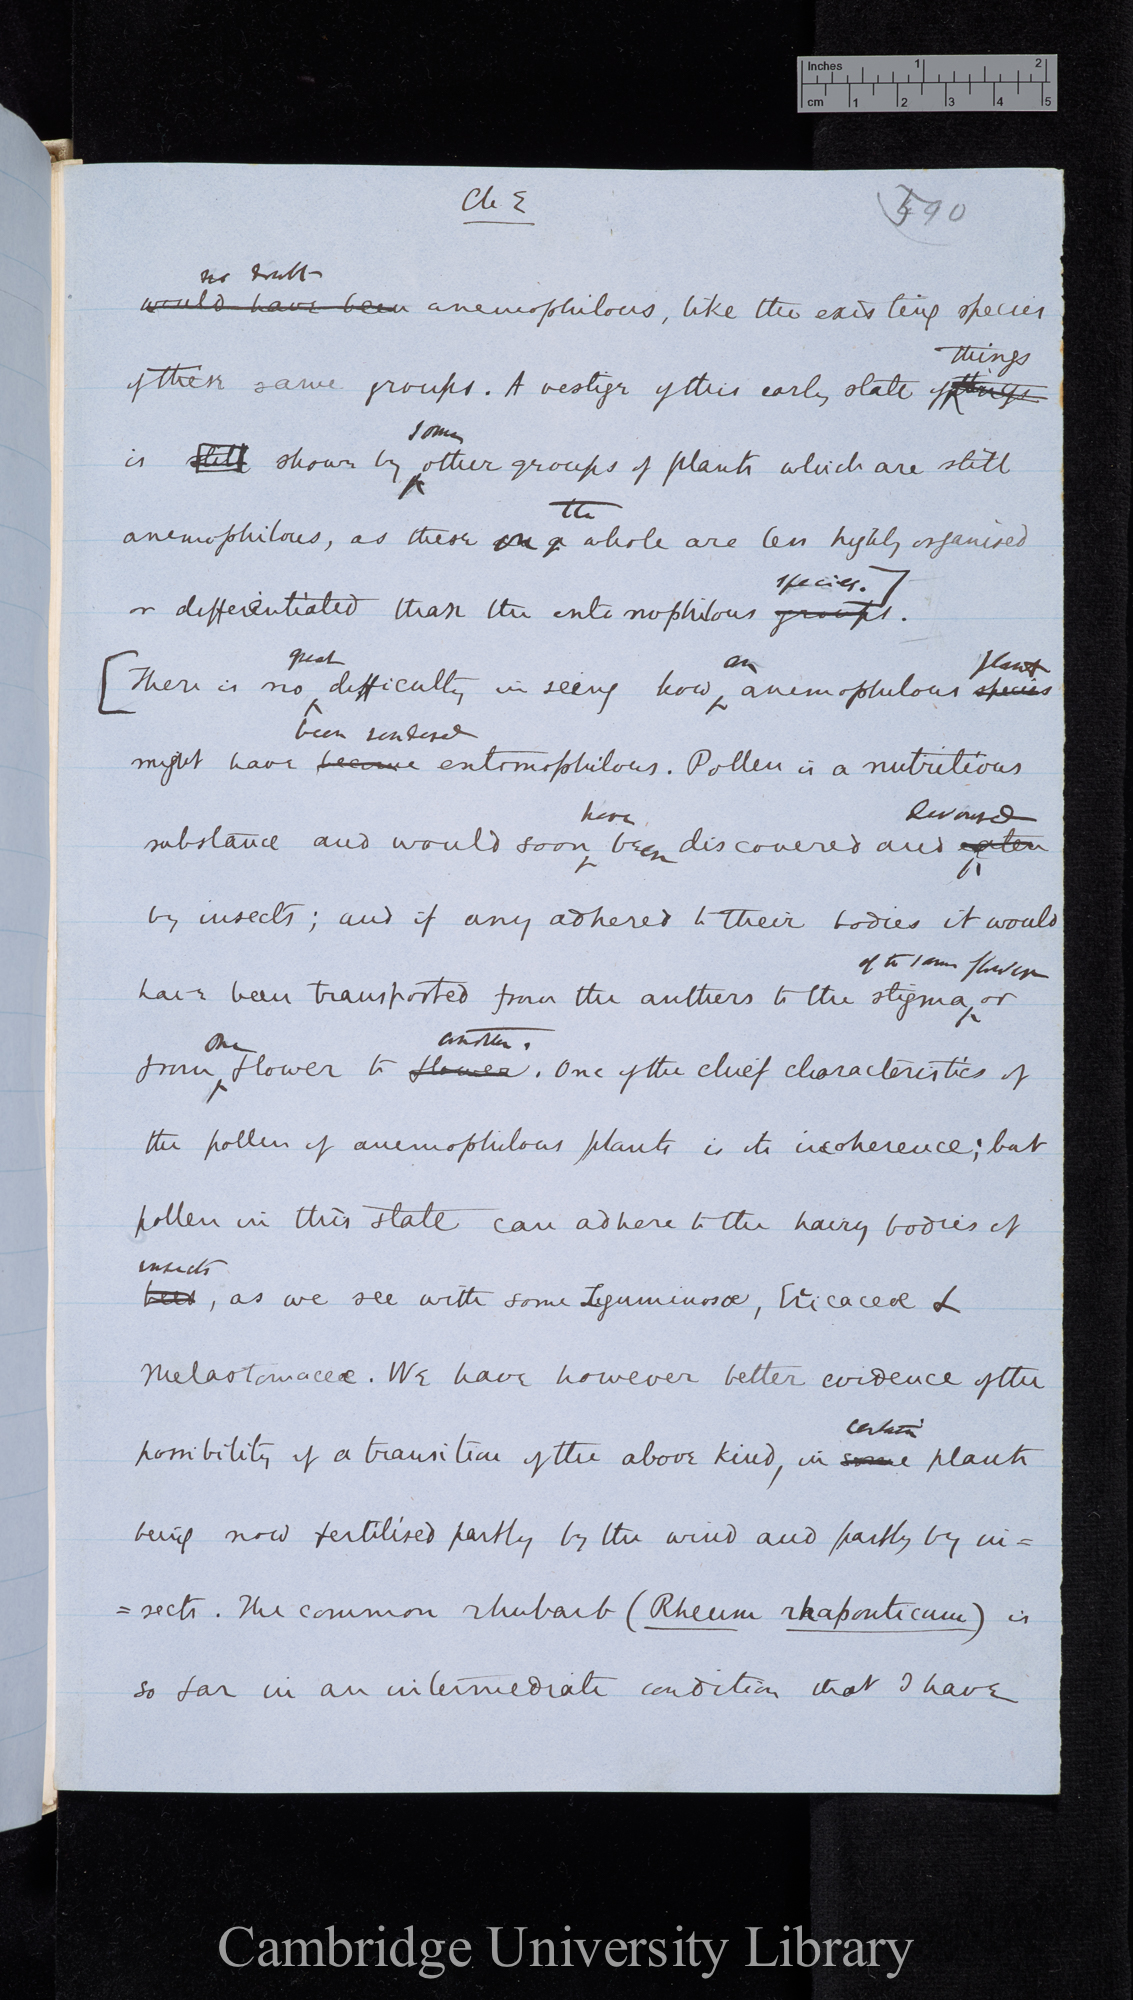 Inches 1 2
cm 1 2 3 4 5
Ch E
590
no doubt
would have been anemophilous, like the existing species
things
of these same groups. A vestige of this early state of things
some
is still shown by other groups of plants which are still
the
anemophilous, as these on a whole are less highly organised
species.]
or differentiated than the entomophilous groups.
great an plant
[There is no difficulty in seeing how anemophilous species
been rendered
might have become entomophilous. Pollen is a nutritious
have devoured
substance and would soon been discovered and eaten
by insects; and if any adhered to their bodies it would
of the same flower
have been transported from the anthers to the stigma or
one another.
from flower to flower. One of the chief characteristics of
the pollen of anemophilous plants is its incoherence; but
pollen in this state can adhere to the hairy bodies of
insects
bees, as we see with some Leguminosæ, Ericaceæ &
Melastomaceæ. We have however better evidence of the
certain
possibility of a transition of the above kind, in some plants
being now fertilised partly by the wind and partly by in=
=sects. The common rhubarb (Rheum rhaponticum) is
so far in an intermediate condition that I have
Cambridge University Library